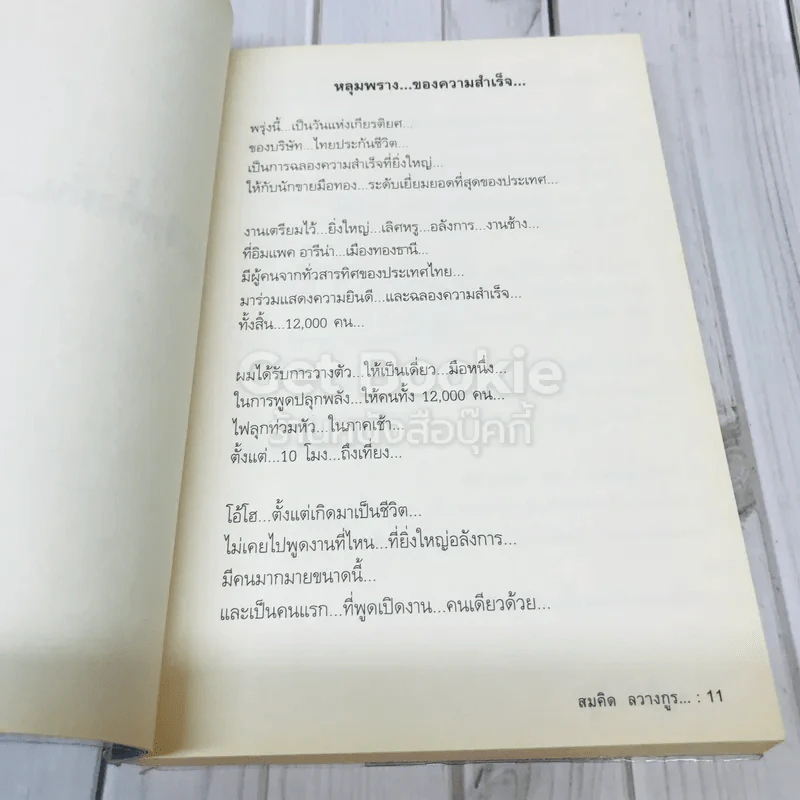 หลุมพราง...ของความสำเร็จ...
พรุ่งนี้...เป็นวันแห่งเกียรติยศ...
ของบริษัท...ไทยประกันชีวิต...
เป็นการฉลองความสำเร็จที่ยิ่งใหญ่...
ให้กับนักขายมือทอง...ระดับเยี่ยมยอดที่สุดของประเทศ...
งานเตรียมไว้...ยิ่งใหญ่...เลิศหรู...อลังการ...งานช้าง...
ที่อิมแพค อารีน่า...เมืองทองธานี...
มีผู้คนจากทั่วสารทิศของประเทศไทย...
มาร่วมแสดงความยินดี...และฉลองความสำเร็จ...
ทั้งสิ้น...12,000 คน...
ผมได้รับการวางตัว...ให้เป็นเดี่ยว...มือหนึ่ง...
ในการพูดปลุกพลัง...ให้คนทั้ง 12,000 คน...
ไฟลุกท่วมหัว...ในภาคเช้า...
ตั้งแต่...10 โมง...ถึงเที่ยง...
โอ้โฮ...ตั้งแต่เกิดมาเป็นชีวิต...
ไม่เคยไปพูดงานที่ไหน...ที่ยิ่งใหญ่อลังการ...
มีคนมากมายขนาดนี้...
และเป็นคนแรก...ที่พูดเปิดงาน...คนเดียวด้วย...
สมคิด ลวางกูร... : 11
Get Bookie
ร้านหนังสือบุ๊คกี้